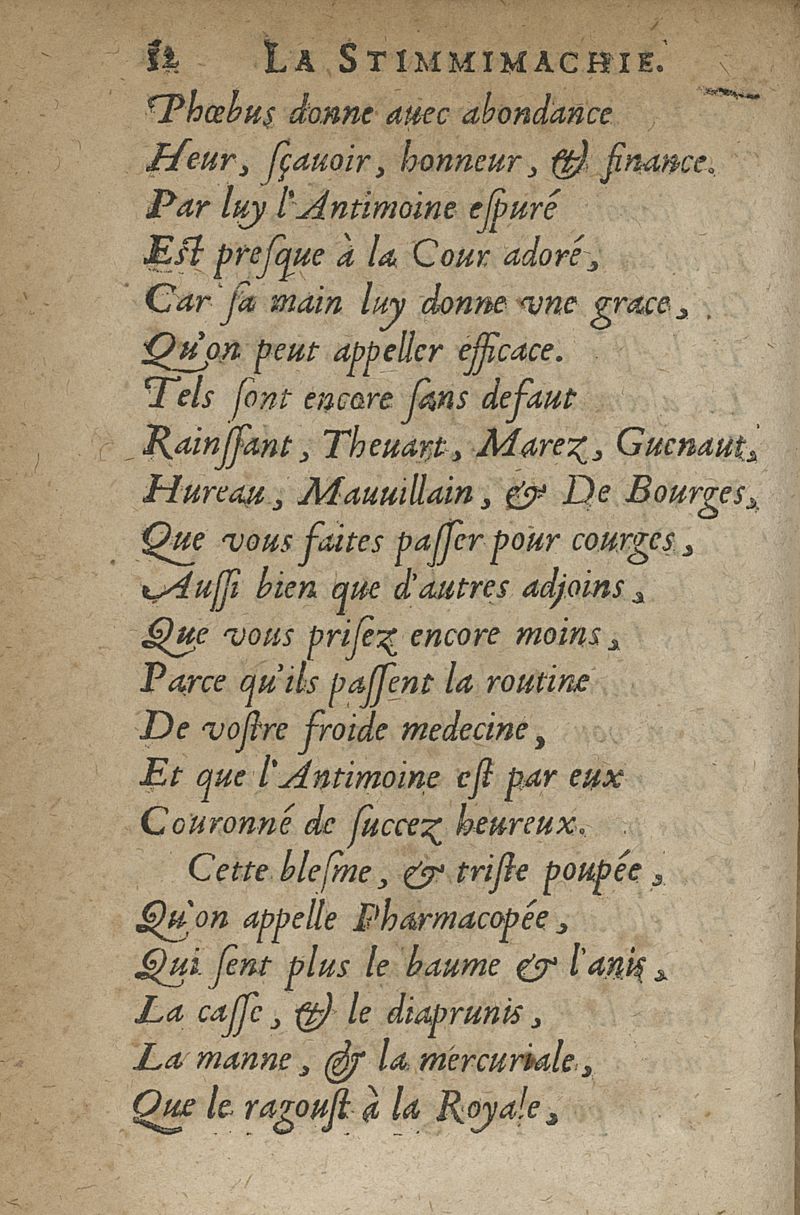 12 LA STIMMIMACHIE.
Phœbus donne auec abondance
Heur, sçauoir, honneur, & finance.
Par luy l'Antimoine eſpuré
Eſt preſque à la Cour adoré,
Car ſa main luy donne vne grace,
Qu'on peut appeller efficace.
Tels ſont encore ſans defaut
Rainſſant, Theuart, Marez, Guenaut,
Hureau, Mauuillain, & De Bourges,
Que vous faites paſſer pour courges,
Auſſi bien que d'autres adjoins,
Que vous priſez encore moins,
Parce qu'ils paſſent la routine
De voſtre froide medecine,
Et que l'Antimoine eſt par eux
Couronné de ſuccez heureux.
Cette bleſme, & triſte poupée,
Qu'on appelle Pharmacopée,
Qui ſent plus le baume & l'anis,
La caſſe, & le diaprunis,
La manne, & la mercuriale,
Que le ragouſt à la Royale,